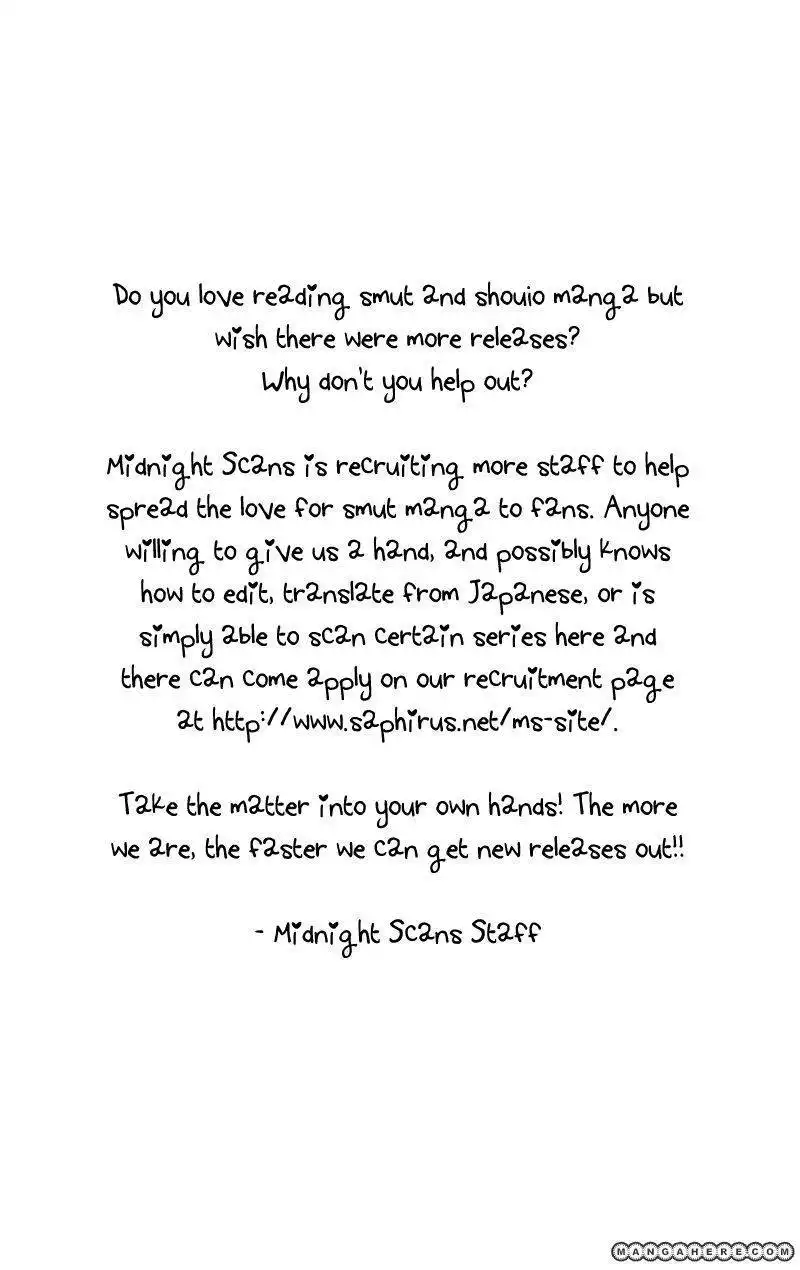 Do you love reading smut and shoujo manga but
wish there were more releases?
Why don't you help out?
Midnight Scans is recruiting more staff to help
spread the love for smut manga to fans. Anyone
willing to give us a hand, and possibly knows
how to edit, translate from Japanese, or is
simply able to scan certain series here and
there can come apply on our recruitment page
at http://www.saphirus.net/ms-site/.
Take the matter into your own hands! The more
we are, the faster we can get new releases out!!
- Midnight Scans Staff
MANGAHERE.COM